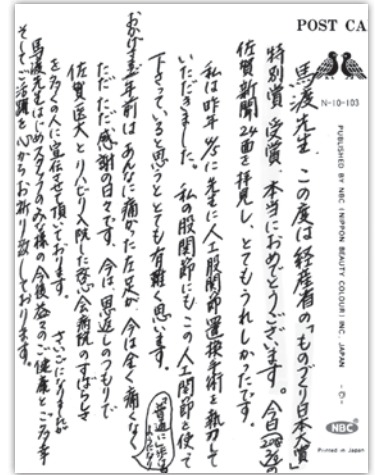 POST CA
N-10-103
PUBLISHED BY NBC (NIPPON BEAUTY COLOUR) INC. JAPAN
NBC
Printed in Japan
馬渡先生 この度は経産省の「ものづくり日本大賞」
特別賞受賞、本当におめでとうございます。今日
佐賀新聞24面を拝見し、とてもうれしかったです。
私は昨年 に先生に人工股関節置換手術を執刀して
いただきました。 私の股関節にもこの人工関節を使って
下さっていると思うととても有難く思います。
おかげさま 年前はあんなに痛かった左足が、今は全く痛くなく
「普通に」歩
ただただ感謝の日々です。今は、恩返しのつもりで
佐賀医大とリハビリ入院した 会病院のすばらしさ
を多くの人に宣伝させて頂いております。 さいごになりましたが
馬渡先生はじめスタッフのみな様の今後益々のご健康とご多幸
そしてご活躍を心からお祈り致しております。